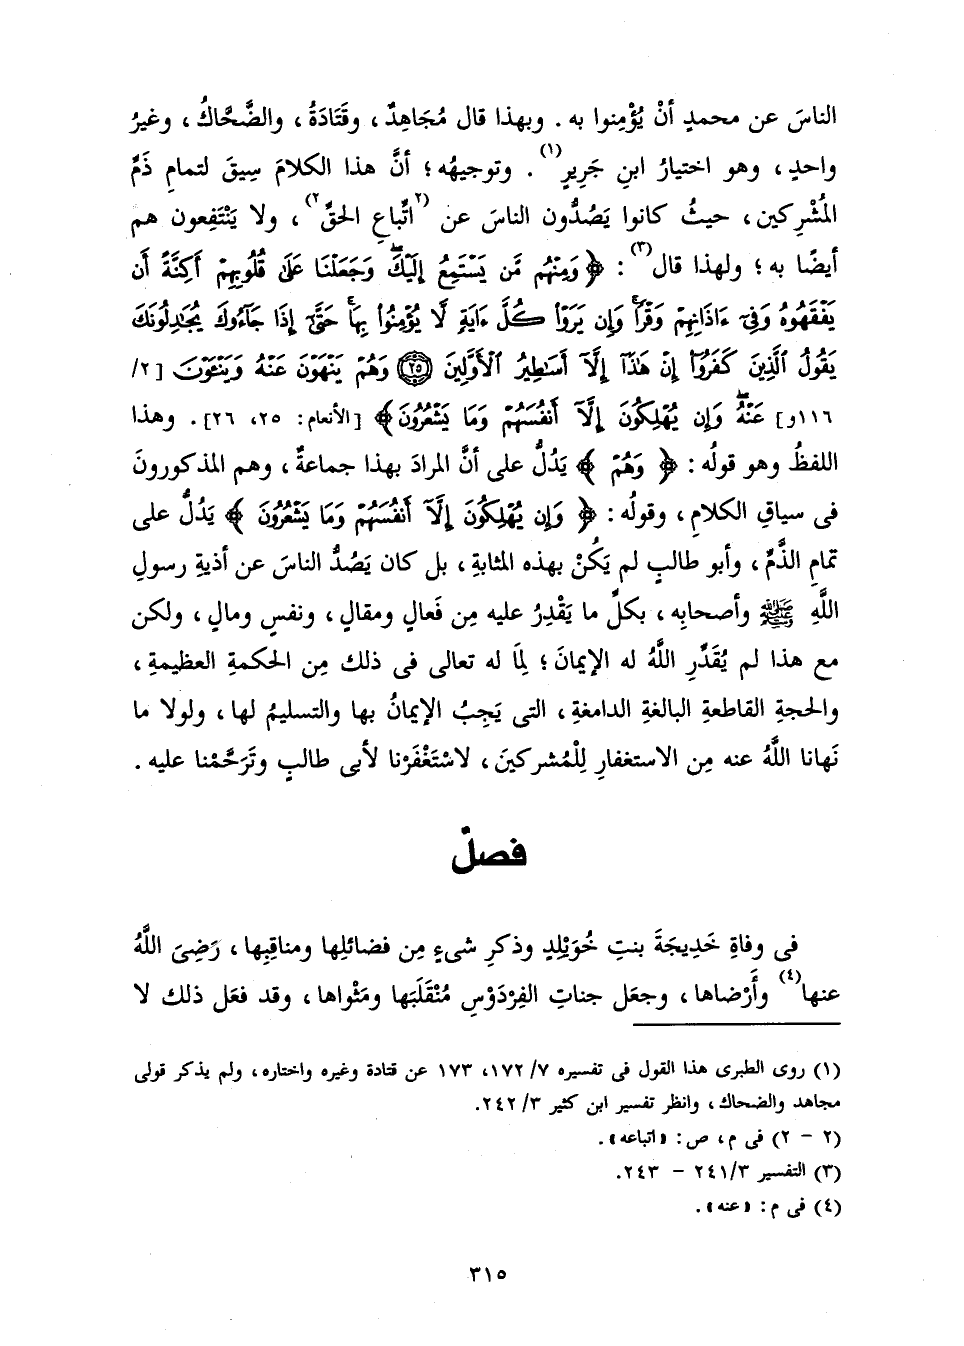 الناسَ عن محمدٍ أنْ يُؤْمِنوا به . وبهذا قال مُجَاهِدٌ ، وقَتَادَةُ ، والضَّحَّاكُ ، وغيرُ
واحدٍ ، وهو اختيارُ ابنِ جَرِيرٍ(١) . وتوجيهُه ؛ أنَّ هذا الكلامَ سِيقَ لتمامِ ذَمِّ
المُشْرِكين ، حيثُ كانوا يَصُدُّون الناسَ عن (٢اتِّباعِ الحقِّ٢) ، ولا يَنْتَفِعون هم
أيضًا به ؛ ولهذا قال(٣) : ﴿ وَمِنْهُم مَّن يَسْتَمِعُ إِلَيْكَۖ وَجَعَلْنَا عَلَىٰ قُلُوبِهِمْ أَكِنَّةً أَن
يَفْقَهُوهُ وَفِىٓ ءَاذَانِهِمْ وَقْرًاۚ وَإِن يَرَوْا۟ كُلَّ ءَايَةٍ لَّا يُؤْمِنُوا۟ بِهَاۚ حَتَّىٰٓ إِذَا جَآءُوكَ يُجَـٰدِلُونَكَ
يَقُولُ ٱلَّذِينَ كَفَرُوٓا۟ إِنْ هَـٰذَآ إِلَّآ أَسَـٰطِيرُ ٱلْأَوَّلِينَ ﴿٢٥﴾ وَهُمْ يَنْهَوْنَ عَنْهُ وَيَنْـَٔوْنَ [٢/
١١٦و] عَنْهُۖ وَإِن يُهْلِكُونَ إِلَّآ أَنفُسَهُمْ وَمَا يَشْعُرُونَ﴾ [الأنعام: ٢٥، ٢٦] . وهذا
اللفظُ وهو قولُه : ﴿ وَهُمْ ﴾ يَدُلُّ على أنَّ المرادَ بهذا جماعةٌ ، وهم المذكورونَ
فى سياقِ الكلامِ ، وقولُه : ﴿ وَإِن يُهْلِكُونَ إِلَّآ أَنفُسَهُمْ وَمَا يَشْعُرُونَ ﴾ يَدُلُّ على
تمامِ الذَّمِّ ، وأبو طالبٍ لم يَكُنْ بهذه المثابةِ ، بل كان يَصُدُّ الناسَ عن أذيةِ رسولِ
اللَّهِ ﷺ وأصحابِه ، بكلِّ ما يَقْدِرُ عليه مِن فَعالٍ ومقالٍ ، ونفسٍ ومالٍ ، ولكن
مع هذا لم يُقَدِّرِ اللَّهُ له الإيمانَ ؛ لِمَا له تعالى فى ذلك مِن الحكمةِ العظيمةِ ،
والحجةِ القاطعةِ البالغةِ الدامغةِ ، التى يَجِبُ الإيمانُ بها والتسليمُ لها ، ولولا ما
نَهانا اللَّهُ عنه مِن الاستغفارِ لِلْمُشركينَ ، لاسْتَغْفَرْنا لأبى طالبٍ وتَرَحَّمْنا عليه .
فصلٌ
فى وفاةِ خَدِيجَةَ بنتِ خُوَيْلِدٍ وذكرِ شىءٍ مِن فضائلِها ومناقبِها ، رَضِىَ اللَّهُ
عنها(٤) وأَرْضاها ، وجعَل جناتِ الفِرْدَوْسِ مُنْقَلَبَها ومَثْواها ، وقد فعَل ذلك لا
(١) روى الطبرى هذا القول فى تفسيره ٧/ ١٧٢، ١٧٣ عن قتادة وغيره واختاره ، ولم يذكر قولى
مجاهد والضحاك ، وانظر تفسير ابن كثير ٣/ ٢٤٢.
(٢ - ٢) فى م، ص: «اتباعه» .
(٣) التفسير ٢٤١/٣ - ٢٤٣.
(٤) فى م: «عنه» .
٣١٥